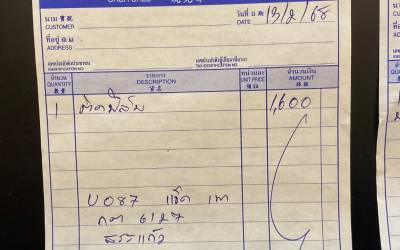 CASH SALE
นาม 寶號
CUSTOMER
วันที่ 日期 13/2/68
DATE
ที่อยู่ 住址
ADDRESS
เลขประจำตัวประชาชน
IDENTIFICATION NO.
เลขประจำตัวผู้เสียภาษีอากร
TAX IDENTIFICATION NO.
จำนวน รายการ หน่วยละ จำนวนเงิน
QUANTITY DESCRIPTION UNIT PRICE AMOUNT
數量 貨名 價錢 銀碼
1 ค่าฟิล์ม 1,600
บ 087
6127
สระแก้ว